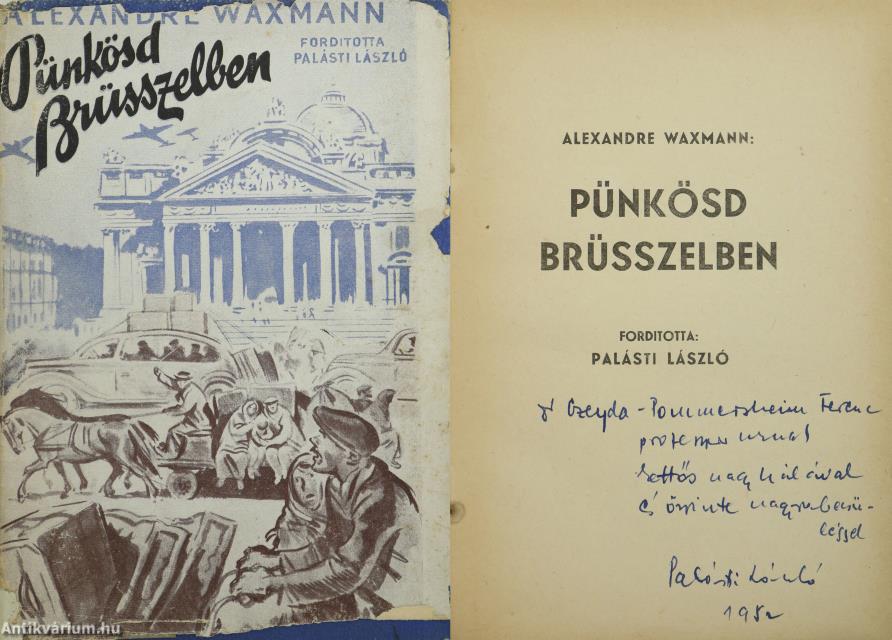 ALEXANDRE WAXMANN
Pünkösd
Brüsszelben
FORDITOTTA
PALÁSTI LÁSZLÓ
Antikvárium.hu
ALEXANDRE WAXMANN:
PÜNKÖSD
BRÜSSZELBEN
FORDITOTTA:
PALÁSTI LÁSZLÓ
Dr Czeyda-Pommersheim Ferenc
professzor urnak
kettős nagy hálával
és őszinte nagyrabecsü-
léssel
Palásti László
1952